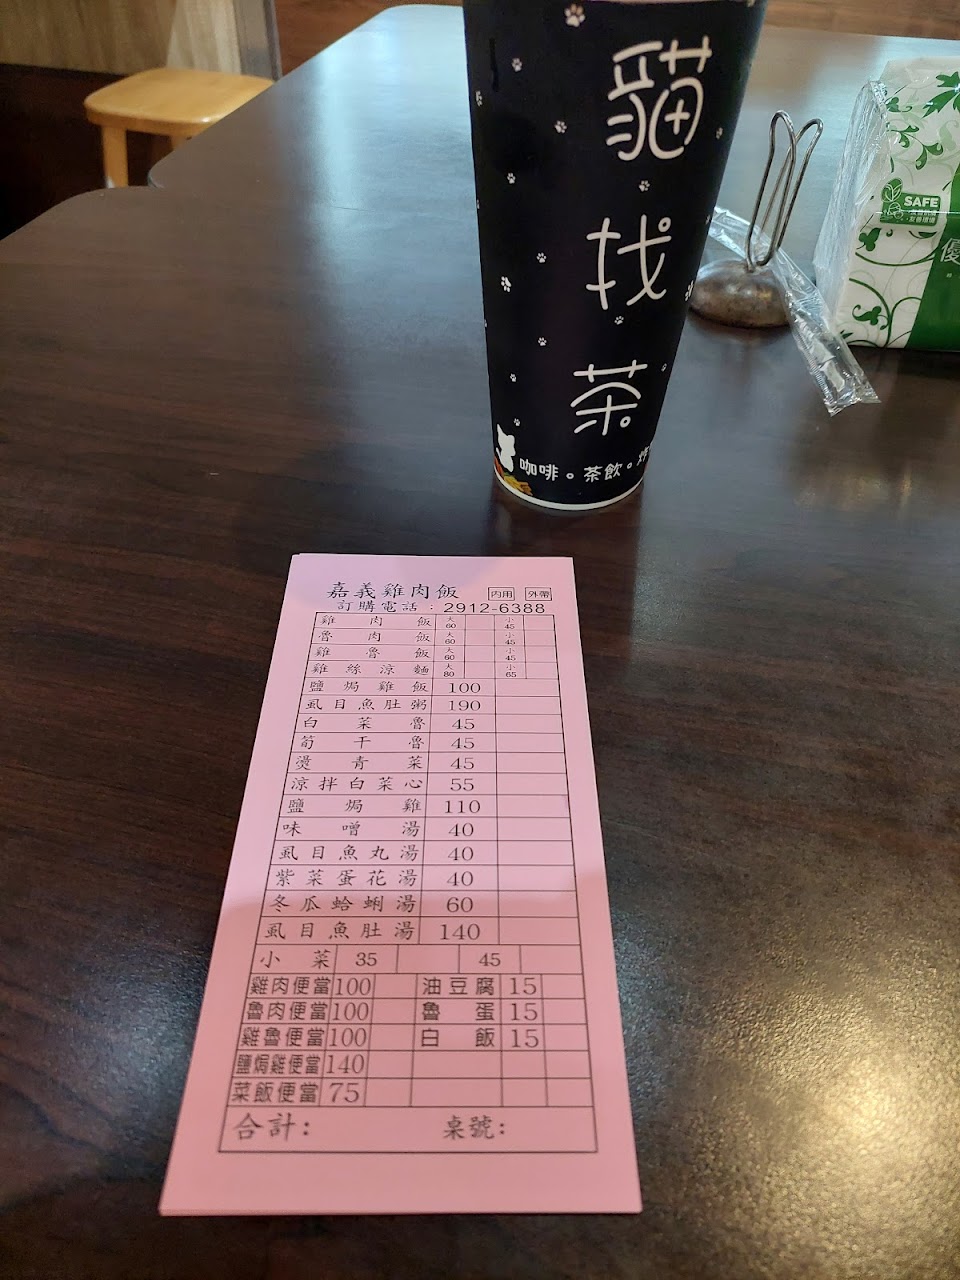 貓
找
茶
咖啡。茶飲。
SAFE
優
嘉義雞肉飯 內用 外帶
訂購電話：2912-6388
雞肉飯 大60 小45
魯肉飯 大60 小45
雞魯飯 大60 小45
雞絲涼麵 大80 小65
鹽焗雞飯 100
虱目魚肚粥 190
白菜魯 45
筍干魯 45
燙青菜 45
涼拌白菜心 55
鹽焗雞 110
味噌湯 40
虱目魚丸湯 40
紫菜蛋花湯 40
冬瓜蛤蜊湯 60
虱目魚肚湯 140
小菜 35 45
雞肉便當 100 油豆腐 15
魯肉便當 100 魯蛋 15
雞魯便當 100 白飯 15
鹽焗雞便當 140
菜飯便當 75
合計： 桌號：